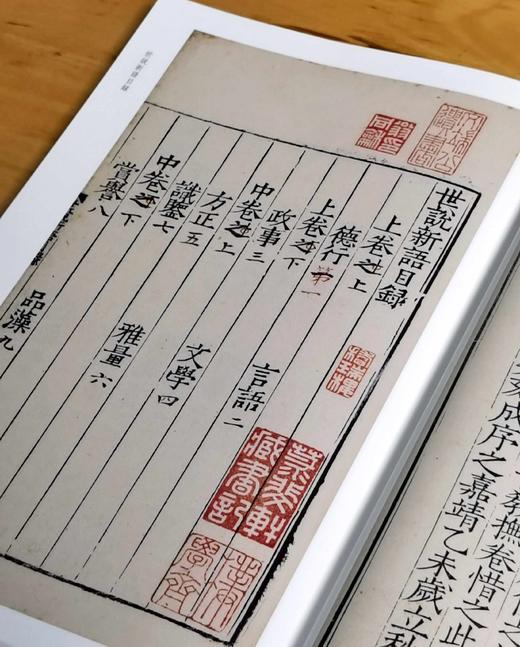 世說新語目録
撫卷惜之此
成序之嘉靖乙未歲立秋
世說新語目録
上卷之上
德行第一 言語二
上卷之下
政事三 文學四
中卷之上
方正五 雅量六
中卷之下
識鑒七
賞譽八 品藻九
斐軒藏書記